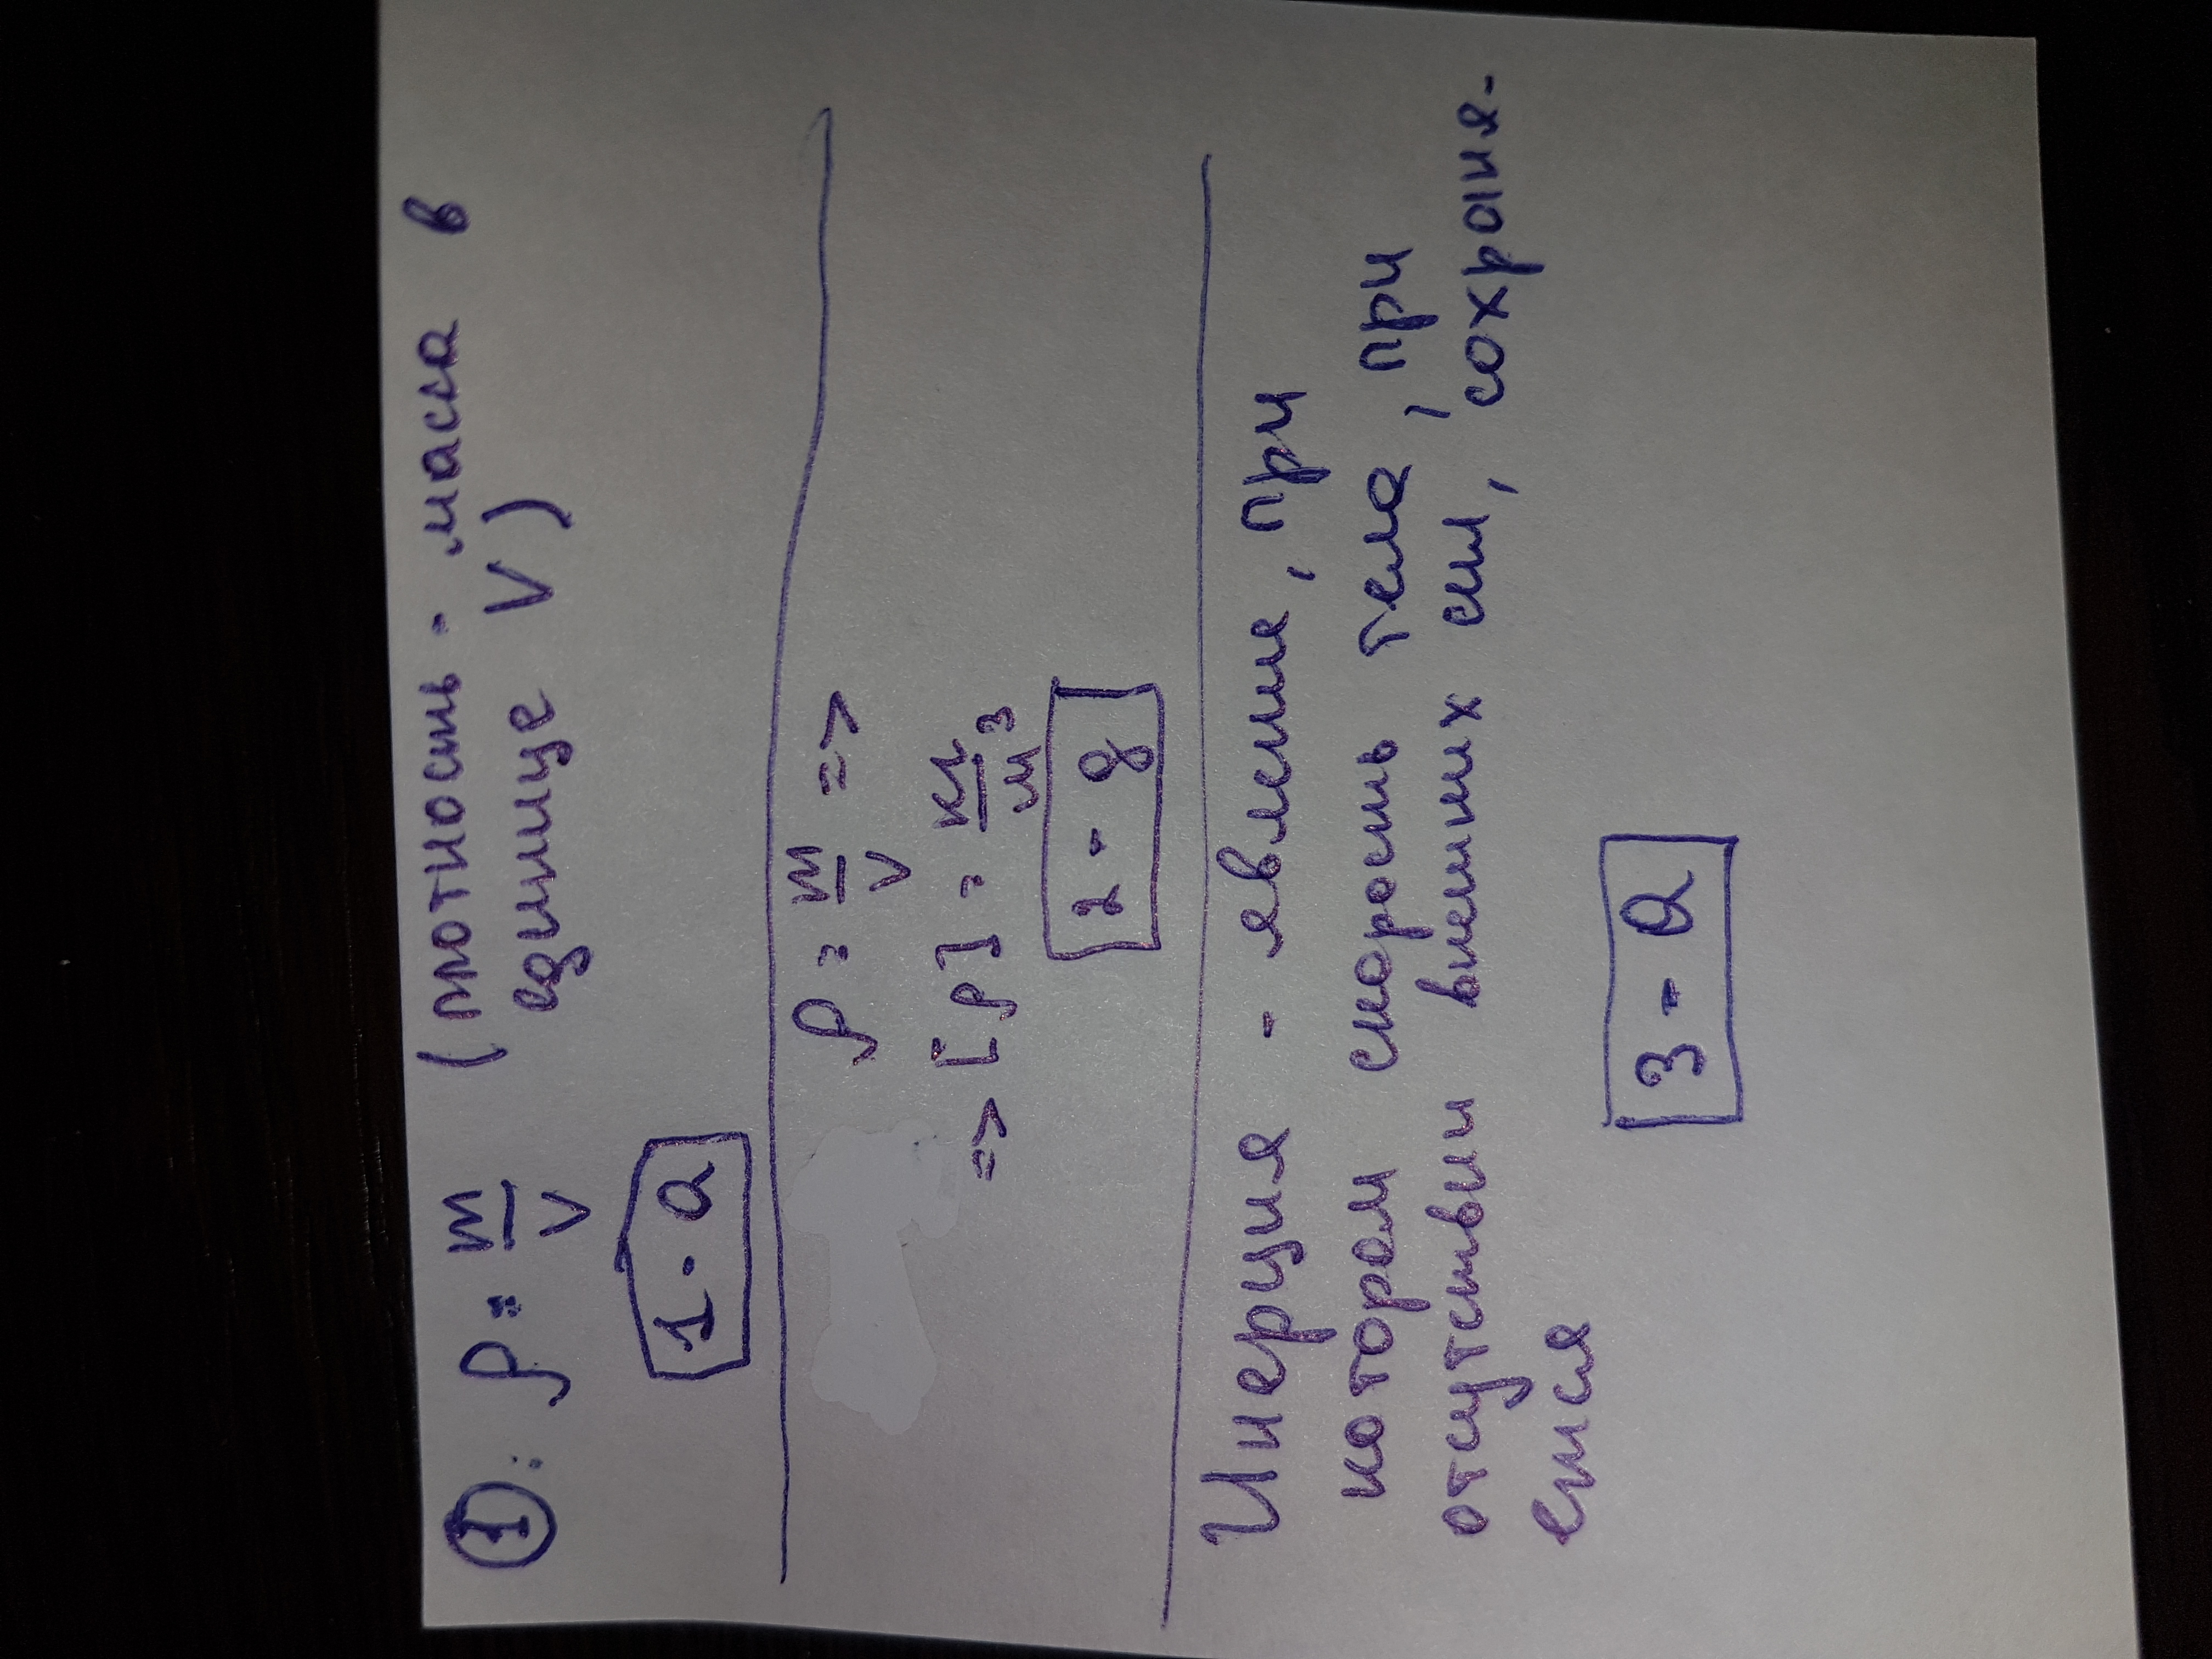 ① : ρ = m/V (плотность - масса в
единице V)
1 - а
ρ = m/V =>
=> [ρ] = кг/м³
2 - д
Инерция - явление, при
котором скорость тела, при
отсутствии внешних сил, сохраня-
ется
3 - а